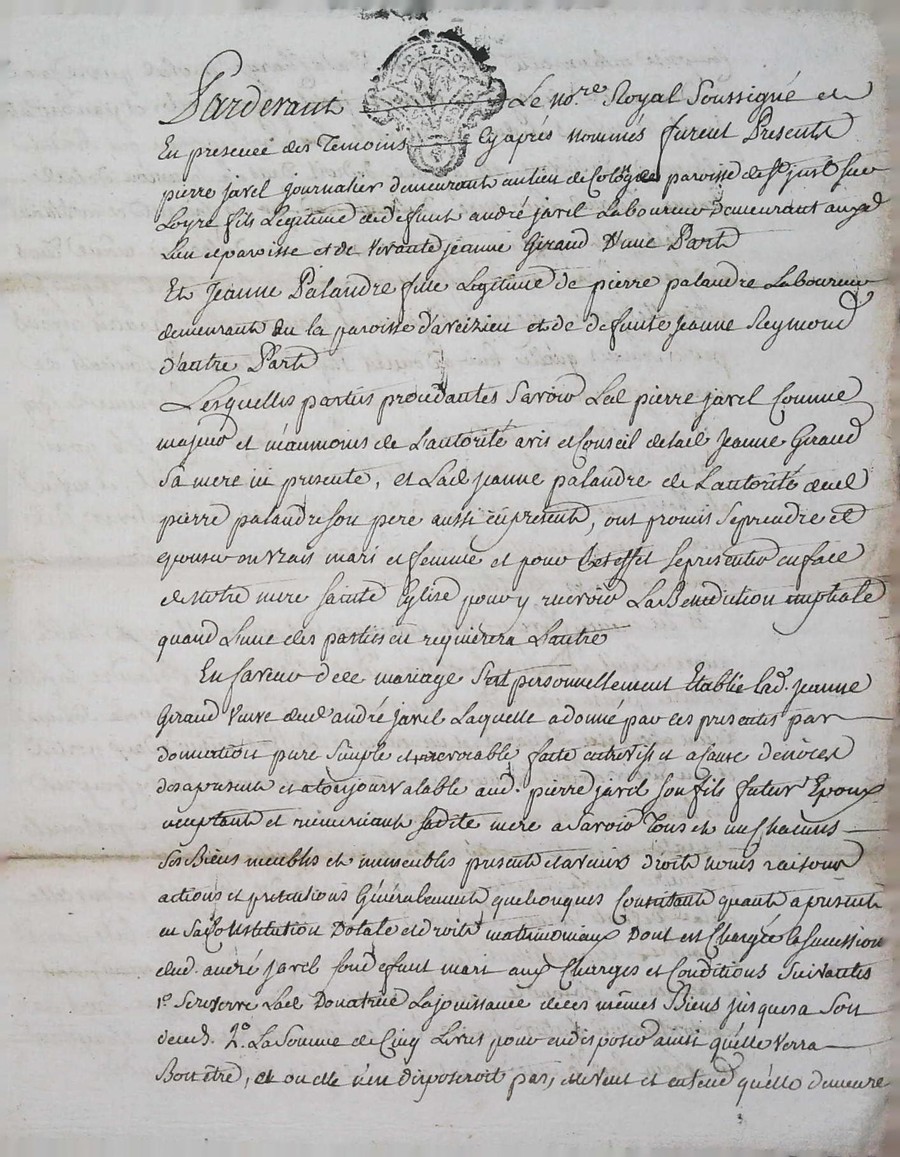 Pardevant Le No.re Royal Soussigné et
En presence des Temoins Cyaprés nommés furent Presents
pierre javel journalier demeurant au lieu de paroisse de St just sur
Loyre fils Legitime de defunt andré javel Laboureur Demeurant auxd
Lieu et paroisse et de vivante jeanne Giraud D'une Part
Et Jeanne Palandre fille Legitime de pierre palandre Laboureur
demeurant du la paroisse d'aveizieu et de defunte Jeanne Reymond
d'autre Part
Lesquelles parties procedantes Savoir Led pierre javel Comme
majeur et néanmoins de L'autorité avis et Conseil de lad Jeanne Giraud
Sa mere ici presente, et Lad jeanne palandre de L'autorité dud
pierre palandre son pere aussi ci present, ont promis Se prendre et
epouser en vrais mari et femme et pour Cet effet se presenter en face
de notre mere sainte Eglise pour y recevoir La Benediction nuptiale
quand L'une des parties en requierera L'autre
En faveur de ce mariage S'est personnellement Etablie lad. Jeanne
Giraud veuve dud andré javel Laquelle a donné par ces presentes par
donnation pure Simple et irrevocable faite entre vifs et a cause de nôces
des a present et a toujours valable aud. pierre javel son fils futur Epoux
acceptant et remerciant sadite mere a Savoir Tous et un Chacuns
Ses Biens meubles et immeubles present et avenir droits noms raisons
actions et pretentions Généralement quelconques Consistants quant a present
en Sa Constitution Dotale et droits matrimoniaux Dont est Chargée la succession
dud. andré javel son defunt mari aux Charges et Conditions Suivantes
1.o Se reserve Lad Donatrice La jouissance de ces mêmes Biens jusqu'a Son
deced. 2.o La Somme de Cinq Livres pour en disposer ainsi qu'elle verra
Bon être, et ou elle n'en disposeroit pas, elle veut et entend qu'elle demeure